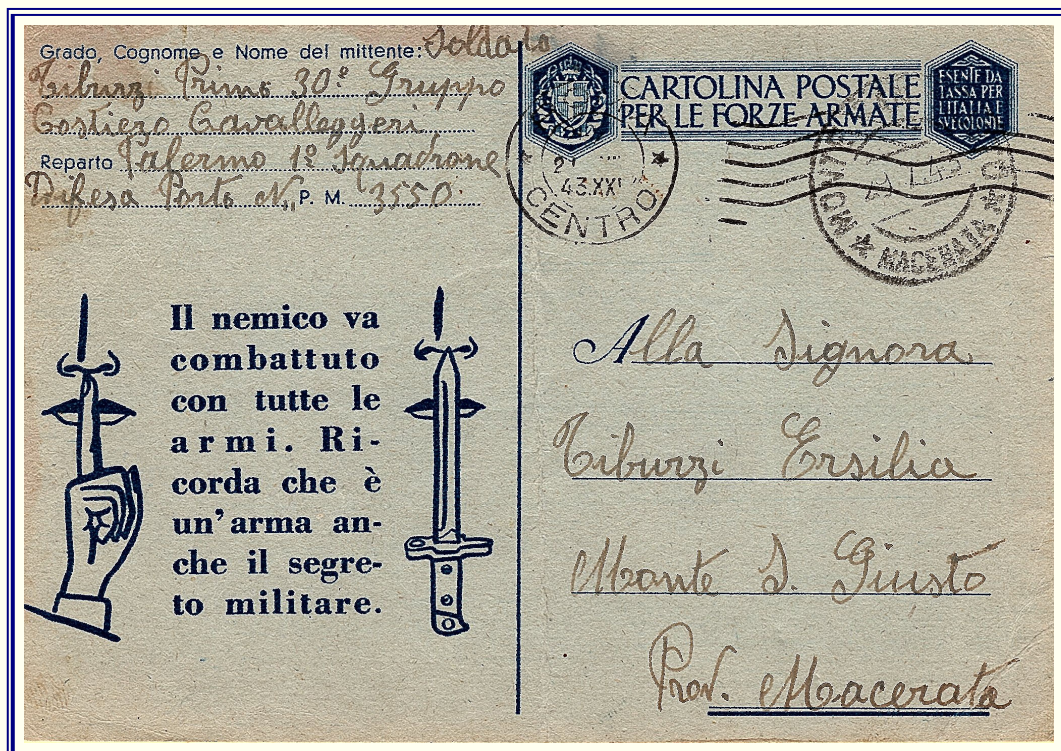 Grado, Cognome e Nome del mittente: Soldato
Tiburzi Primo 30º Gruppo
Costiero Cavalleggeri
Reparto Palermo 1º Squadrone
Difesa Porto N, P. M. 3550
CARTOLINA POSTALE
PER LE FORZE ARMATE
ESENTE DA
TASSA PER
L'ITALIA E
SUE COLONIE
43.XXI
CENTRO
MACERATA
Il nemico va
combattuto
con tutte le
armi. Ri-
corda che è
un'arma an-
che il segre-
to militare.
Alla Signora
Tiburzi Ersilia
Monte S. Giusto
Prov. Macerata